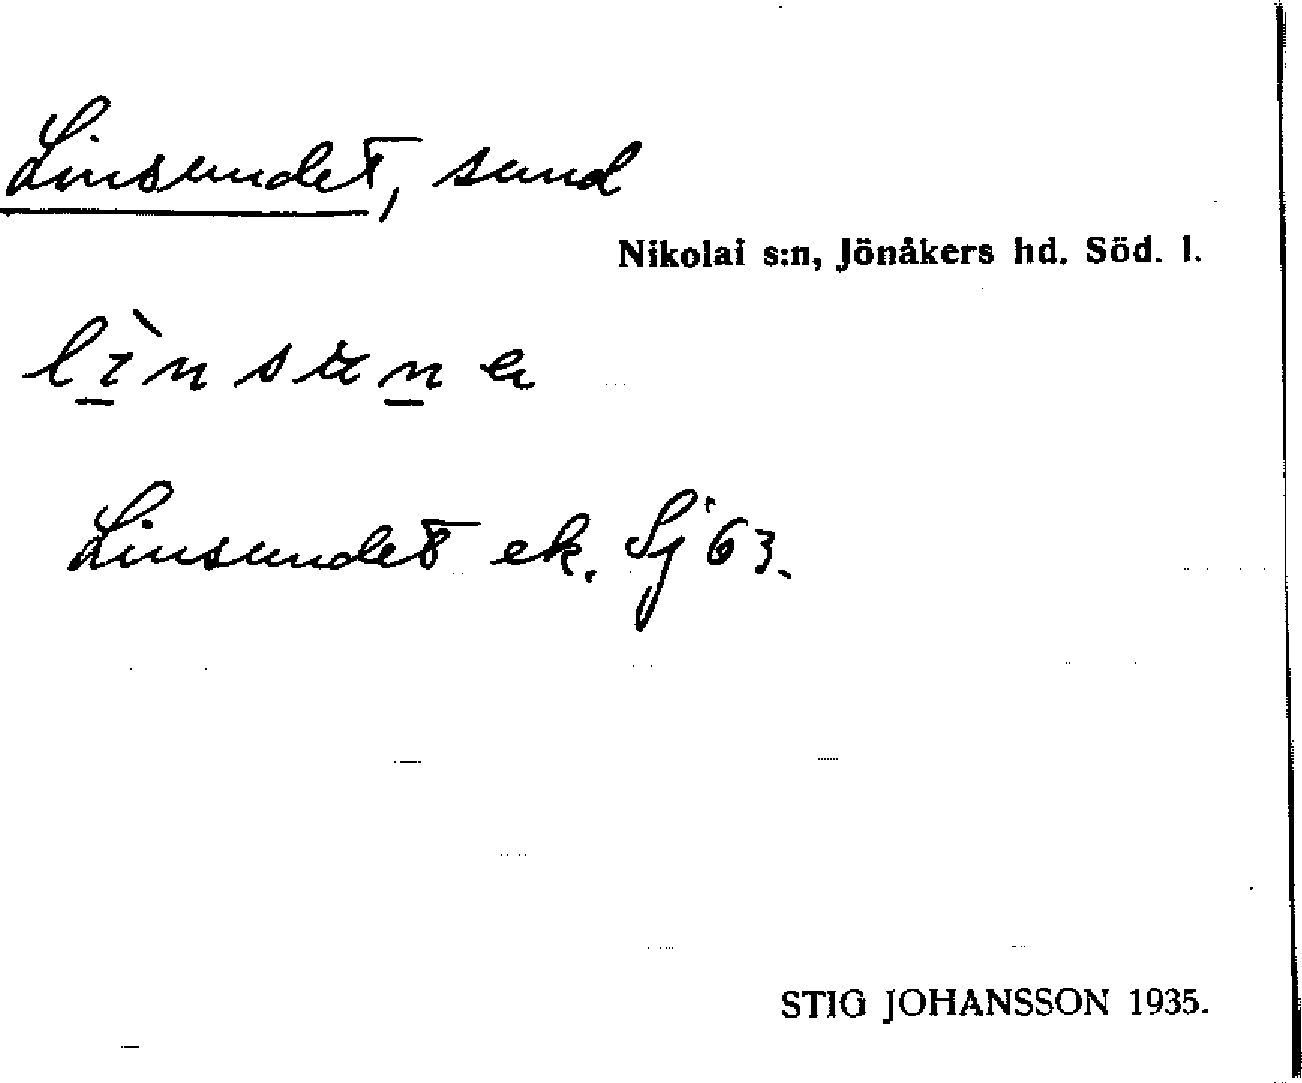 Linsundet, sund
Nikolai s:n, Jönåkers hd. Söd. l.
Linsundet ek. Sj 63.
STIG JOHANSSON 1935.